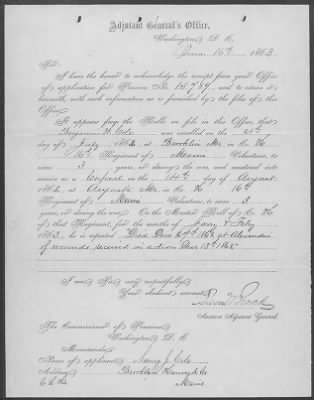 Adjutant General's Office,
Washington, D. C.
June 16th 1863
Sir:
I have the honor to acknowledge the receipt from your Office
of application for Pension No. 18,789, and to return it
herewith, with such information as is furnished by the files of this
Office.
It appears from the Rolls on file in this Office, that
Benjamin W. Cole was enrolled on the 21st
day of July, 1862, at Brooklin Me in Co. K,
16th Regiment of Maine Volunteers, to
serve 3 years, or during the war, and mustered into
service as a Corporal on the 14th day of August,
1862, at Augusta Me, in Co. K, 16th
Regiment of Maine Volunteers, to serve 3
years, or during the war. On the Muster Roll of Co. K,
of that Regiment, for the months of Jany & Feby,
1863, he is reported Died Dec 27th 1862 at Alexandria
of wounds received in action Dec 13th 1862
I am, Sir, very respectfully,
Your obedient servant,
Assistant Adjutant General.
The Commissioner of Pensions,
Washington, D. C.
Memoranda:
Name of applicant, J. Cole
Address, Brooklin Hancock Co
Maine